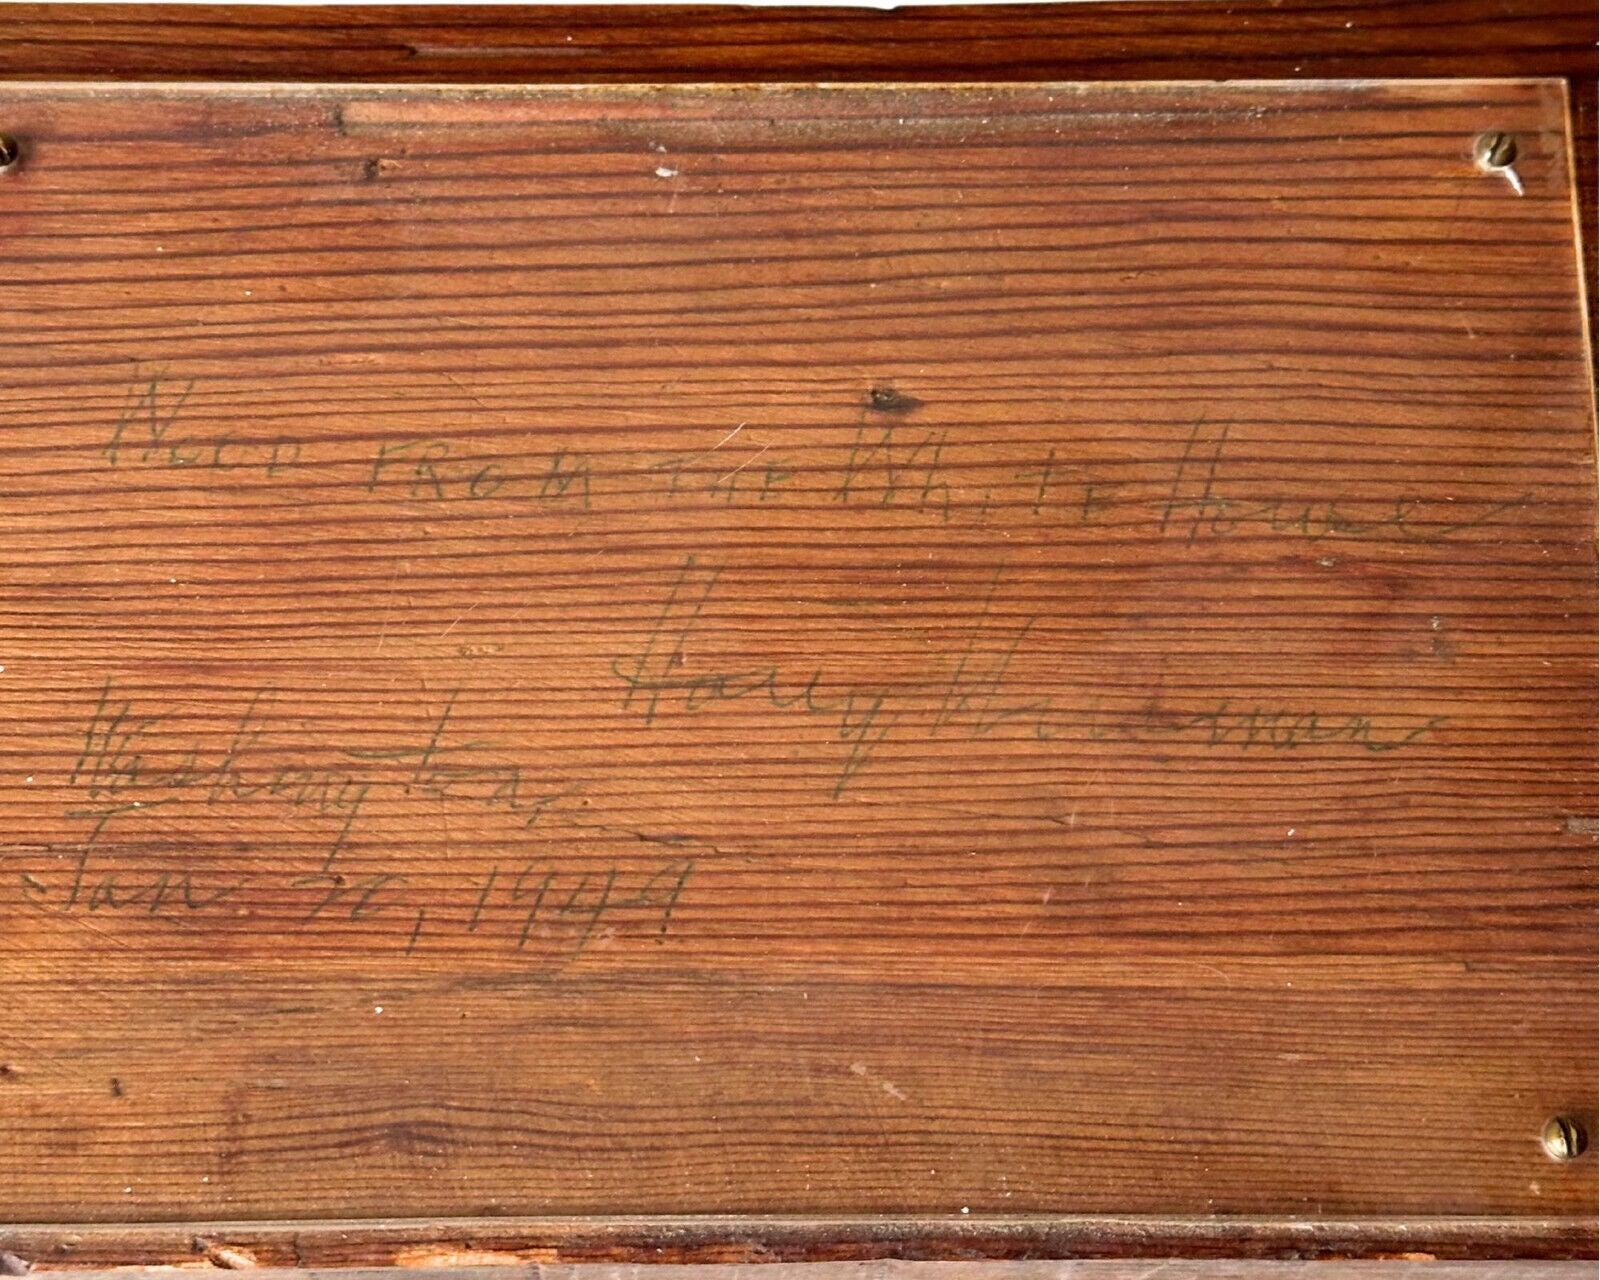 WOOD FROM THE WhiTE House
Harry
Washington
Jan 20, 1949